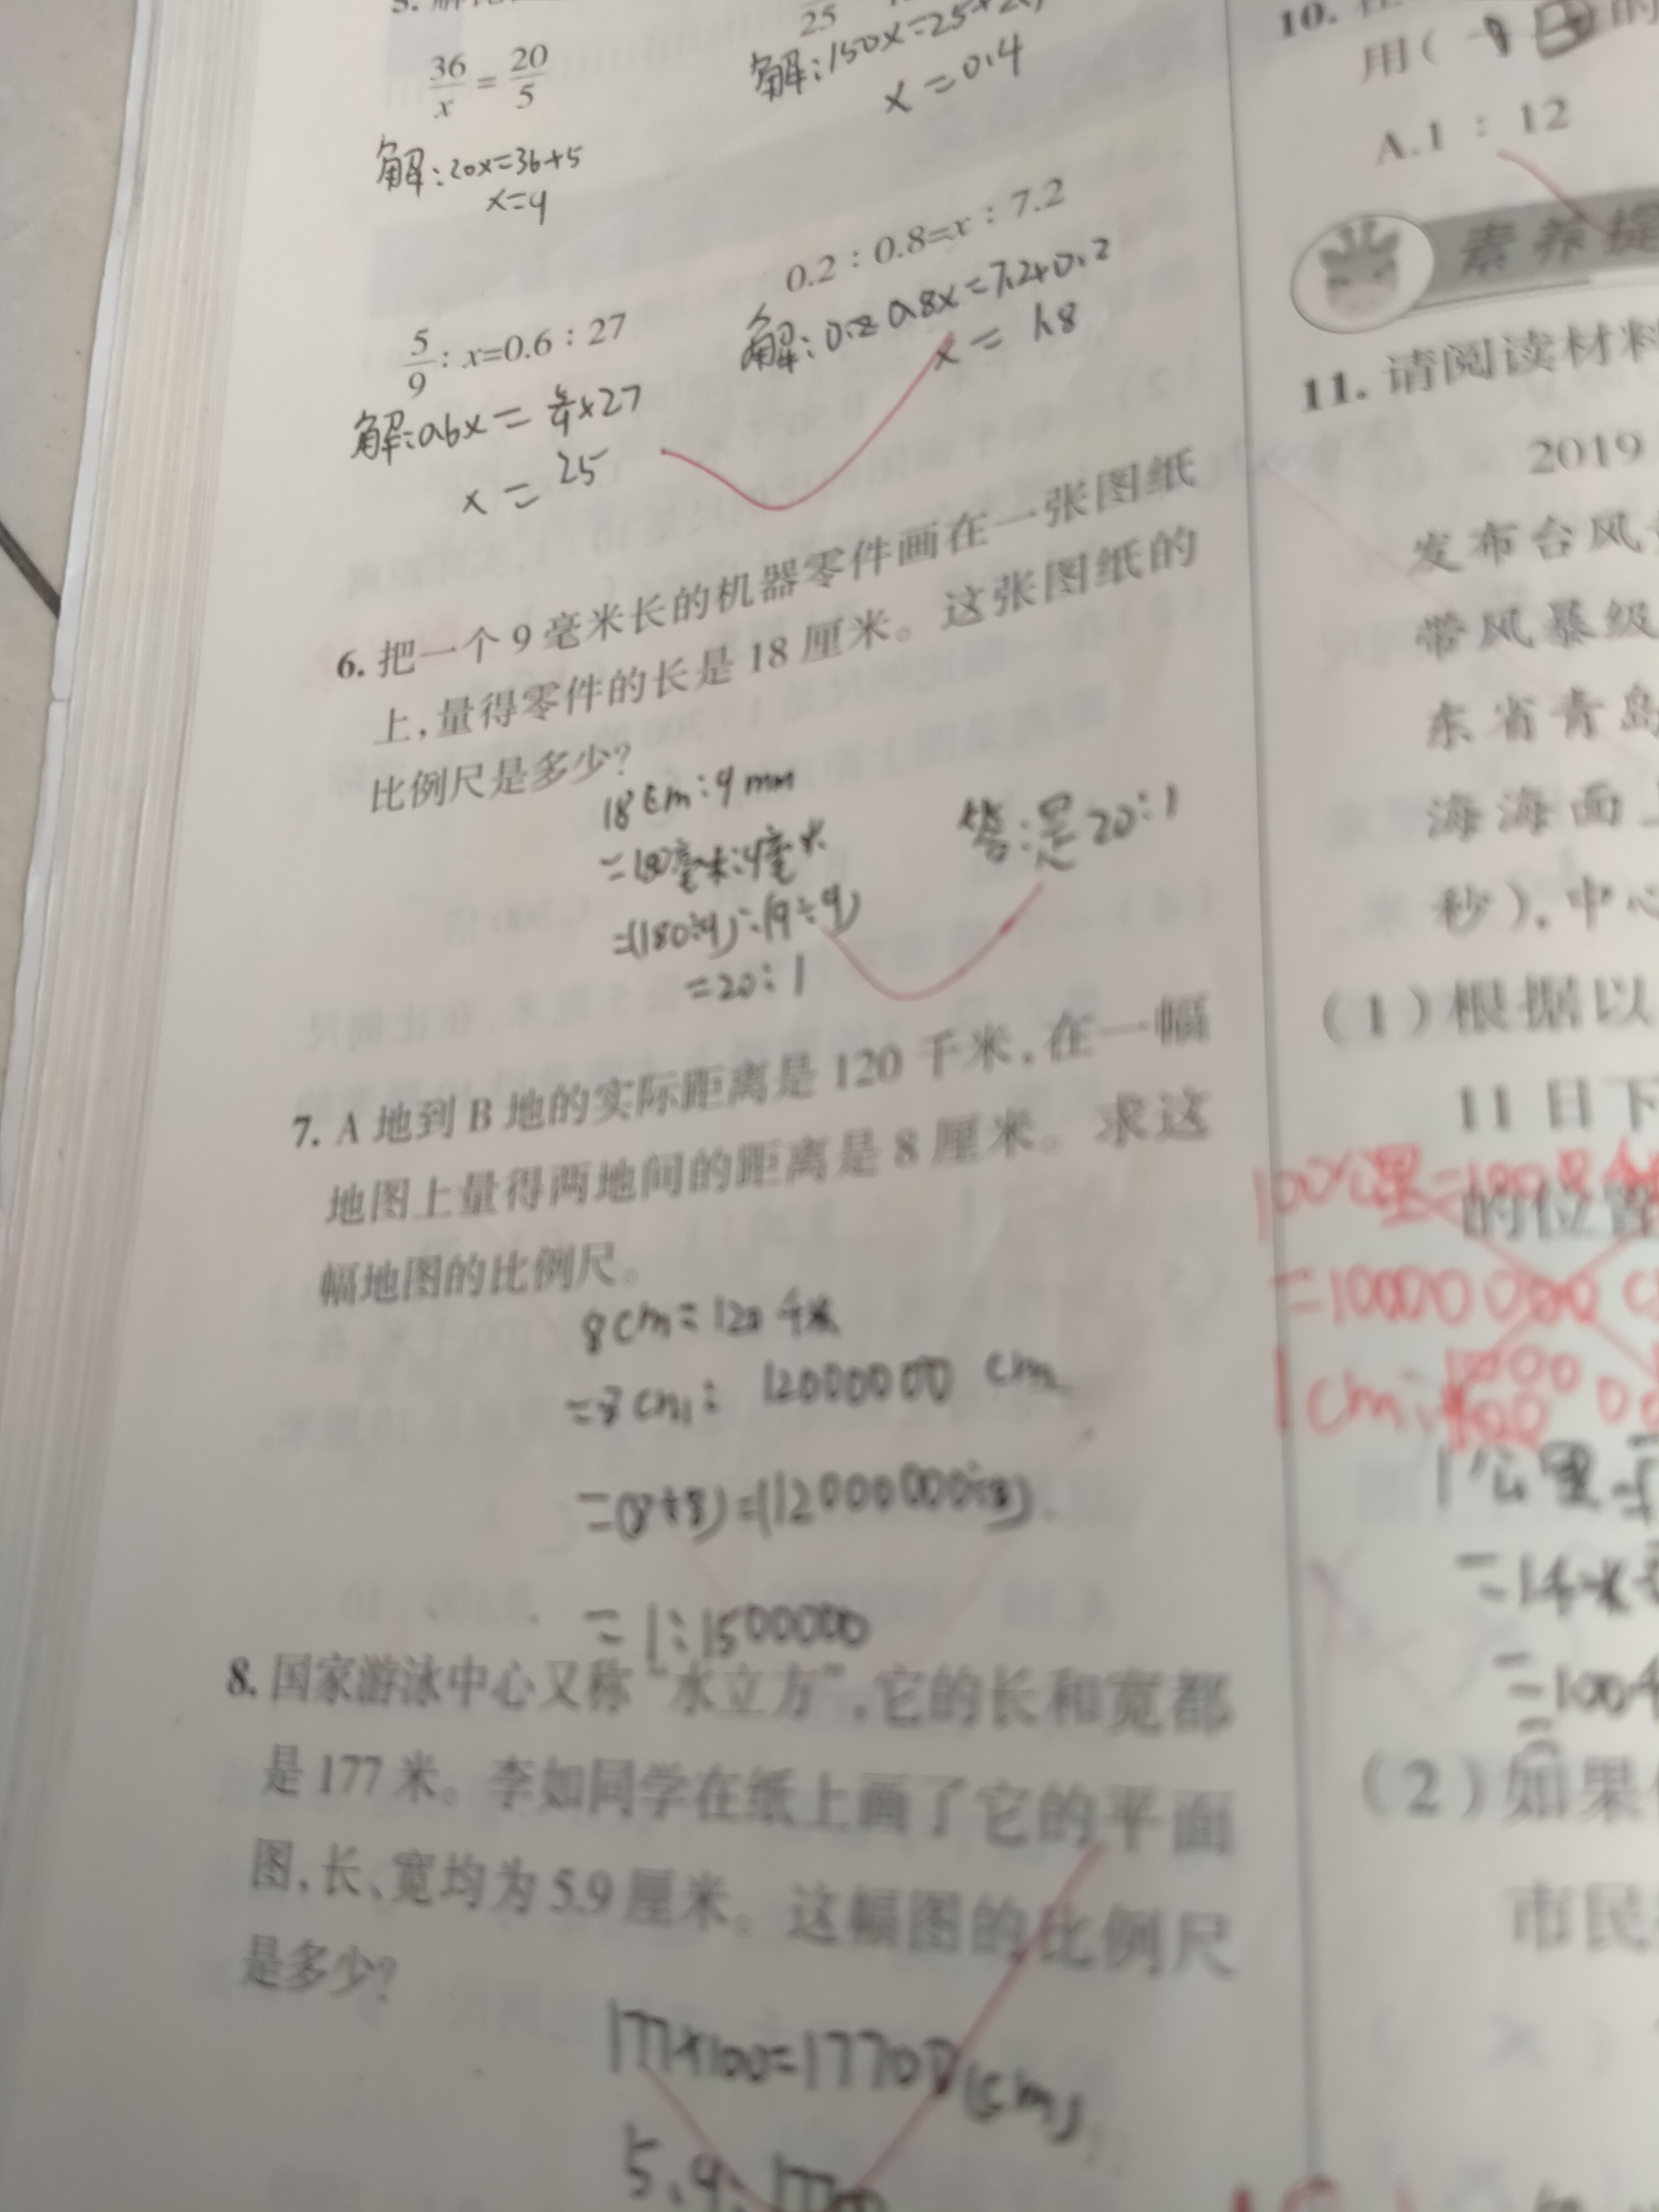 36/x = 20/5
25
解:150x=25×
x=0.4
解:20x=36×5
x=9
5/9:x=0.6:27
0.2:0.8=x:7.2
解:0.6x=5/9×27
x=25
解:0.8x=7.2×0.2
x=1.8
6. 把一个9毫米长的机器零件画在一张图纸
上,量得零件的长是18厘米。这张图纸的
比例尺是多少?
18cm:9mm
=180毫米:9毫米
=(180÷9):(9÷9)
=20:1
答:是20:1
7. A地到B地的实际距离是120千米,在一幅
地图上量得两地间的距离是8厘米。求这
幅地图的比例尺。
8cm=120千米
=8cm:12000000cm
=(8÷8)=(12000000÷8)
=1:1500000
8. 国家游泳中心又称“水立方”,它的长和宽都
是177米。李如同学在纸上画了它的平面
图,长、宽均为5.9厘米。这幅图的比例尺
是多少?
177×100=17700(cm)
5.9:177
10.
用(
A.1:12
素养提
11. 请阅读材料
2019
发布台风
带风暴级
东省青岛
海海面上
秒),中心
(1)根据以
11日下
的位置
100公里=100
=10000000
1cm:
1公里
=1千米
=100
(2)如果
市民